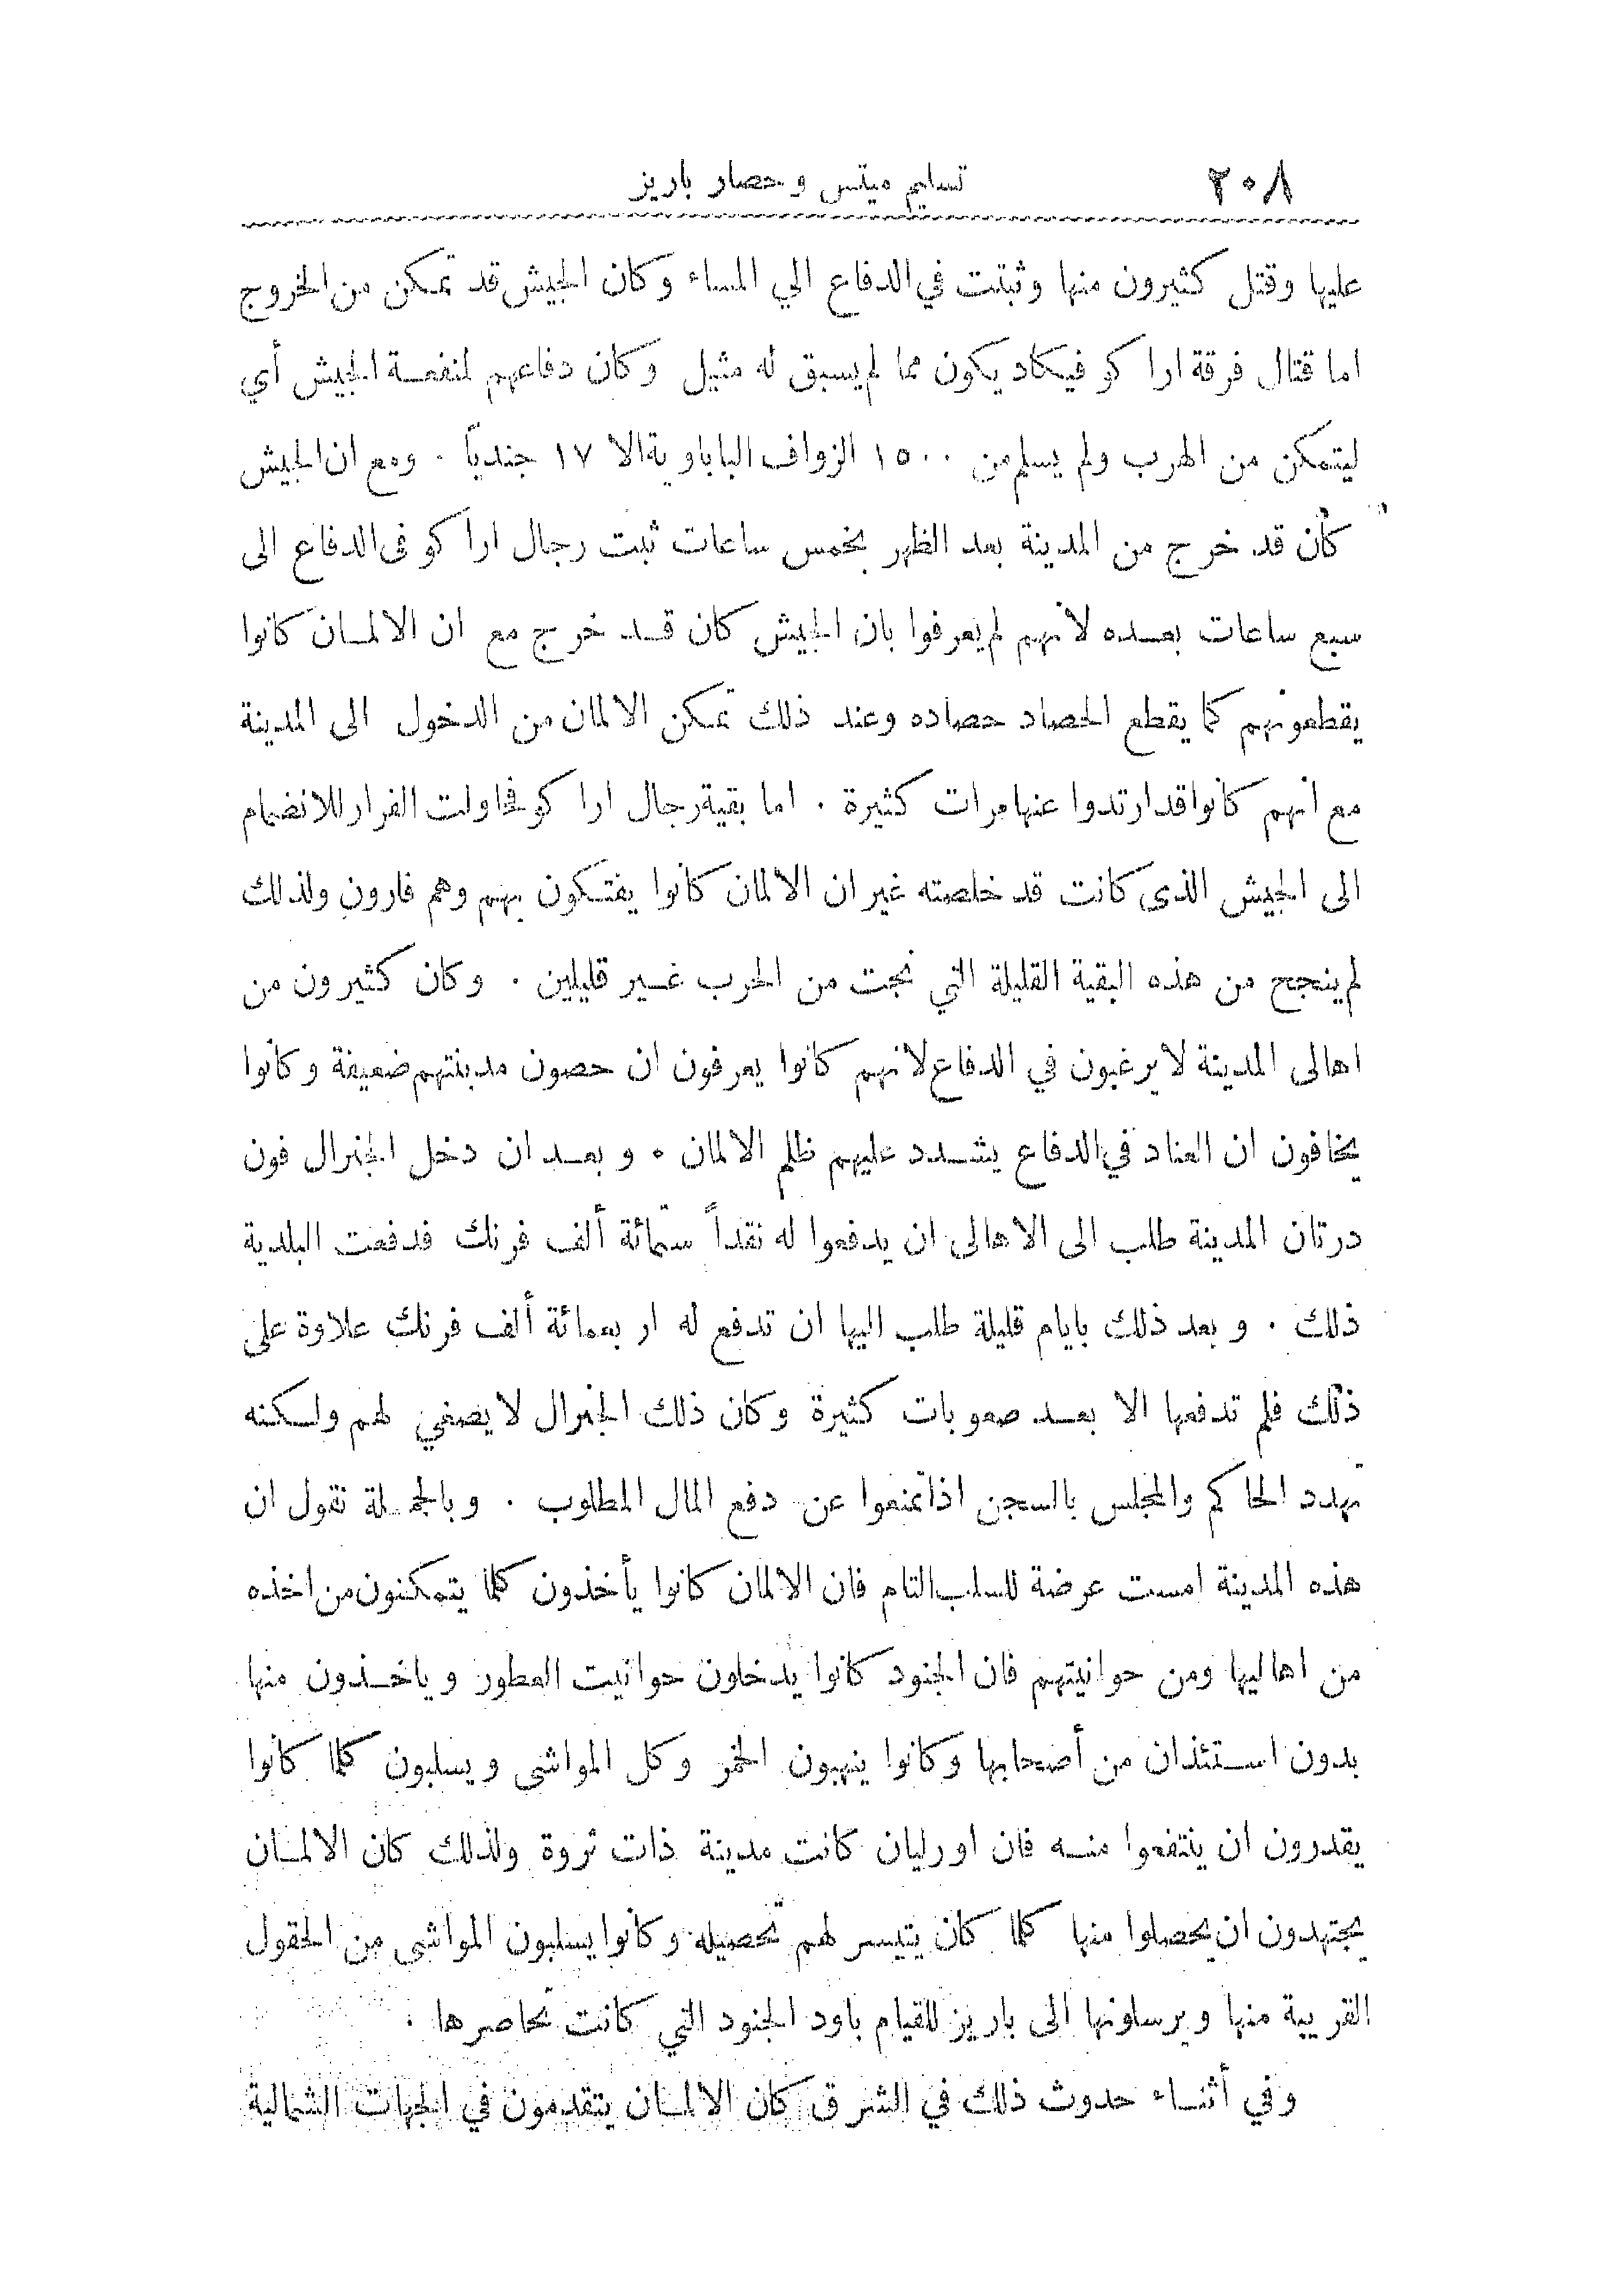 ٢٠٨ تسليم ميتس وحصار باريز
عليها وقتل كثيرون منها وثبتت في الدفاع الي المساء وكان الجيش قد تمكن من الخروج
اما قتال فرقة ارا كو فيكاد يكون مما لم يسبق له مثيل وكان دفاعهم لمنفعة الجيش أي
ليتمكن من الهرب ولم يسلم من ١٥٠٠ الزواف الباباوية الا ١٧ جندياً . ومع ان الجيش
كان قد خرج من المدينة بعد الظهر بخمس ساعات ثبت رجال ارا كو فى الدفاع الى
سبع ساعات بعده لانهم لم يعرفوا بان الجيش كان قد خرج مع ان الالمان كانوا
يقطعونهم كما يقطع الحصاد حصاده وعند ذلك تمكن الالمان من الدخول الى المدينة
مع انهم كانوا قد ارتدوا عنها مرات كثيرة . اما بقية رجال ارا كو فحاولت الفرار للانضمام
الى الجيش الذى كانت قد خلصته غير ان الالمان كانوا يفتكون بهم وهم فارون ولذلك
لم ينجح من هذه البقية القليلة التي نجت من الحرب غير قليلين . وكان كثيرون من
اهالى المدينة لا يرغبون في الدفاع لانهم كانوا يعرفون ان حصون مدينتهم ضعيفة وكانوا
يخافون ان العناد في الدفاع يشدد عليهم ظلم الالمان . وبعد ان دخل الجنرال فون
درتان المدينة طلب الى الاهالى ان يدفعوا له نقداً ستمائة ألف فرنك فدفعت البلدية
ذلك . وبعد ذلك بايام قليلة طلب اليها ان تدفع له اربعمائة ألف فرنك علاوة على
ذلك فلم تدفعها الا بعد صعوبات كثيرة وكان ذلك الجنرال لا يصغي لهم ولكنه
تهدد الحاكم والمجلس بالسجن اذا تمنعوا عن دفع المال المطلوب . وبالجملة نقول ان
هذه المدينة امست عرضة للسلب التام فان الالمان كانوا يأخذون كلما يتمكنون من اخذه
من اهاليها ومن حوانيتهم فان الجنود كانوا يدخلون حوانيت العطور وياخذون منها
بدون استئذان من أصحابها وكانوا ينهبون الخمر وكل المواشى ويسلبون كلما كانوا
يقدرون ان ينتفعوا منه فان اورليان كانت مدينة ذات ثروة ولذلك كان الالمان
يجتهدون ان يحصلوا منها كلما كان يتيسر لهم تحصيله وكانوا يسلبون المواشى من الحقول
القريبة منها ويرسلونها الى باريز للقيام باود الجنود التي كانت تحاصرها .
وفي أثناء حدوث ذلك في الشرق كان الالمان يتقدمون في الجهات الشمالية